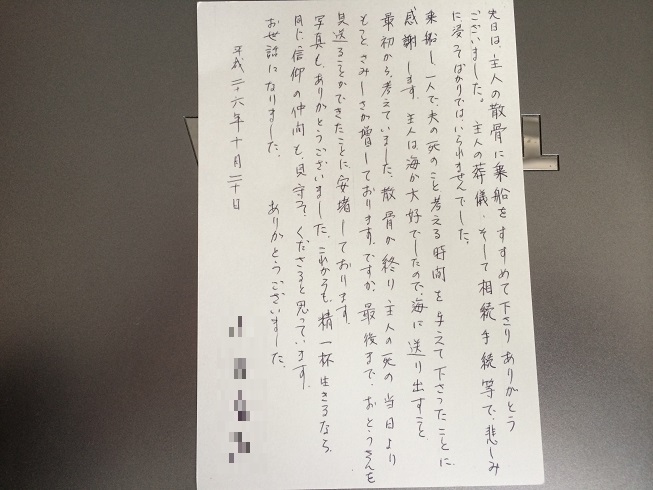 先日は、主人の散骨に乗船をすすめて下さりありがとう
ございました。主人の葬儀・そして相続手続等で、悲しみ
に浸るばかりではいられませんでした。
乗船し一人で、夫の死のこと考える時間を与えて下さったことに
感謝します。主人は海が大好でしたので、海に送り出すこと
最初から、考えていました。散骨が終り主人の死の当日より
もっと、さみしさが増しております。ですが、最後まで、おとうさんを
見送ることができたことに安堵しております。
写真も、ありがとうございました。これからも、精一杯生きるなら、
同じ信仰の仲間も、見守って、くださると思っています。
お世話になりました。ありがとうございました。
平成二十六年十月二十日